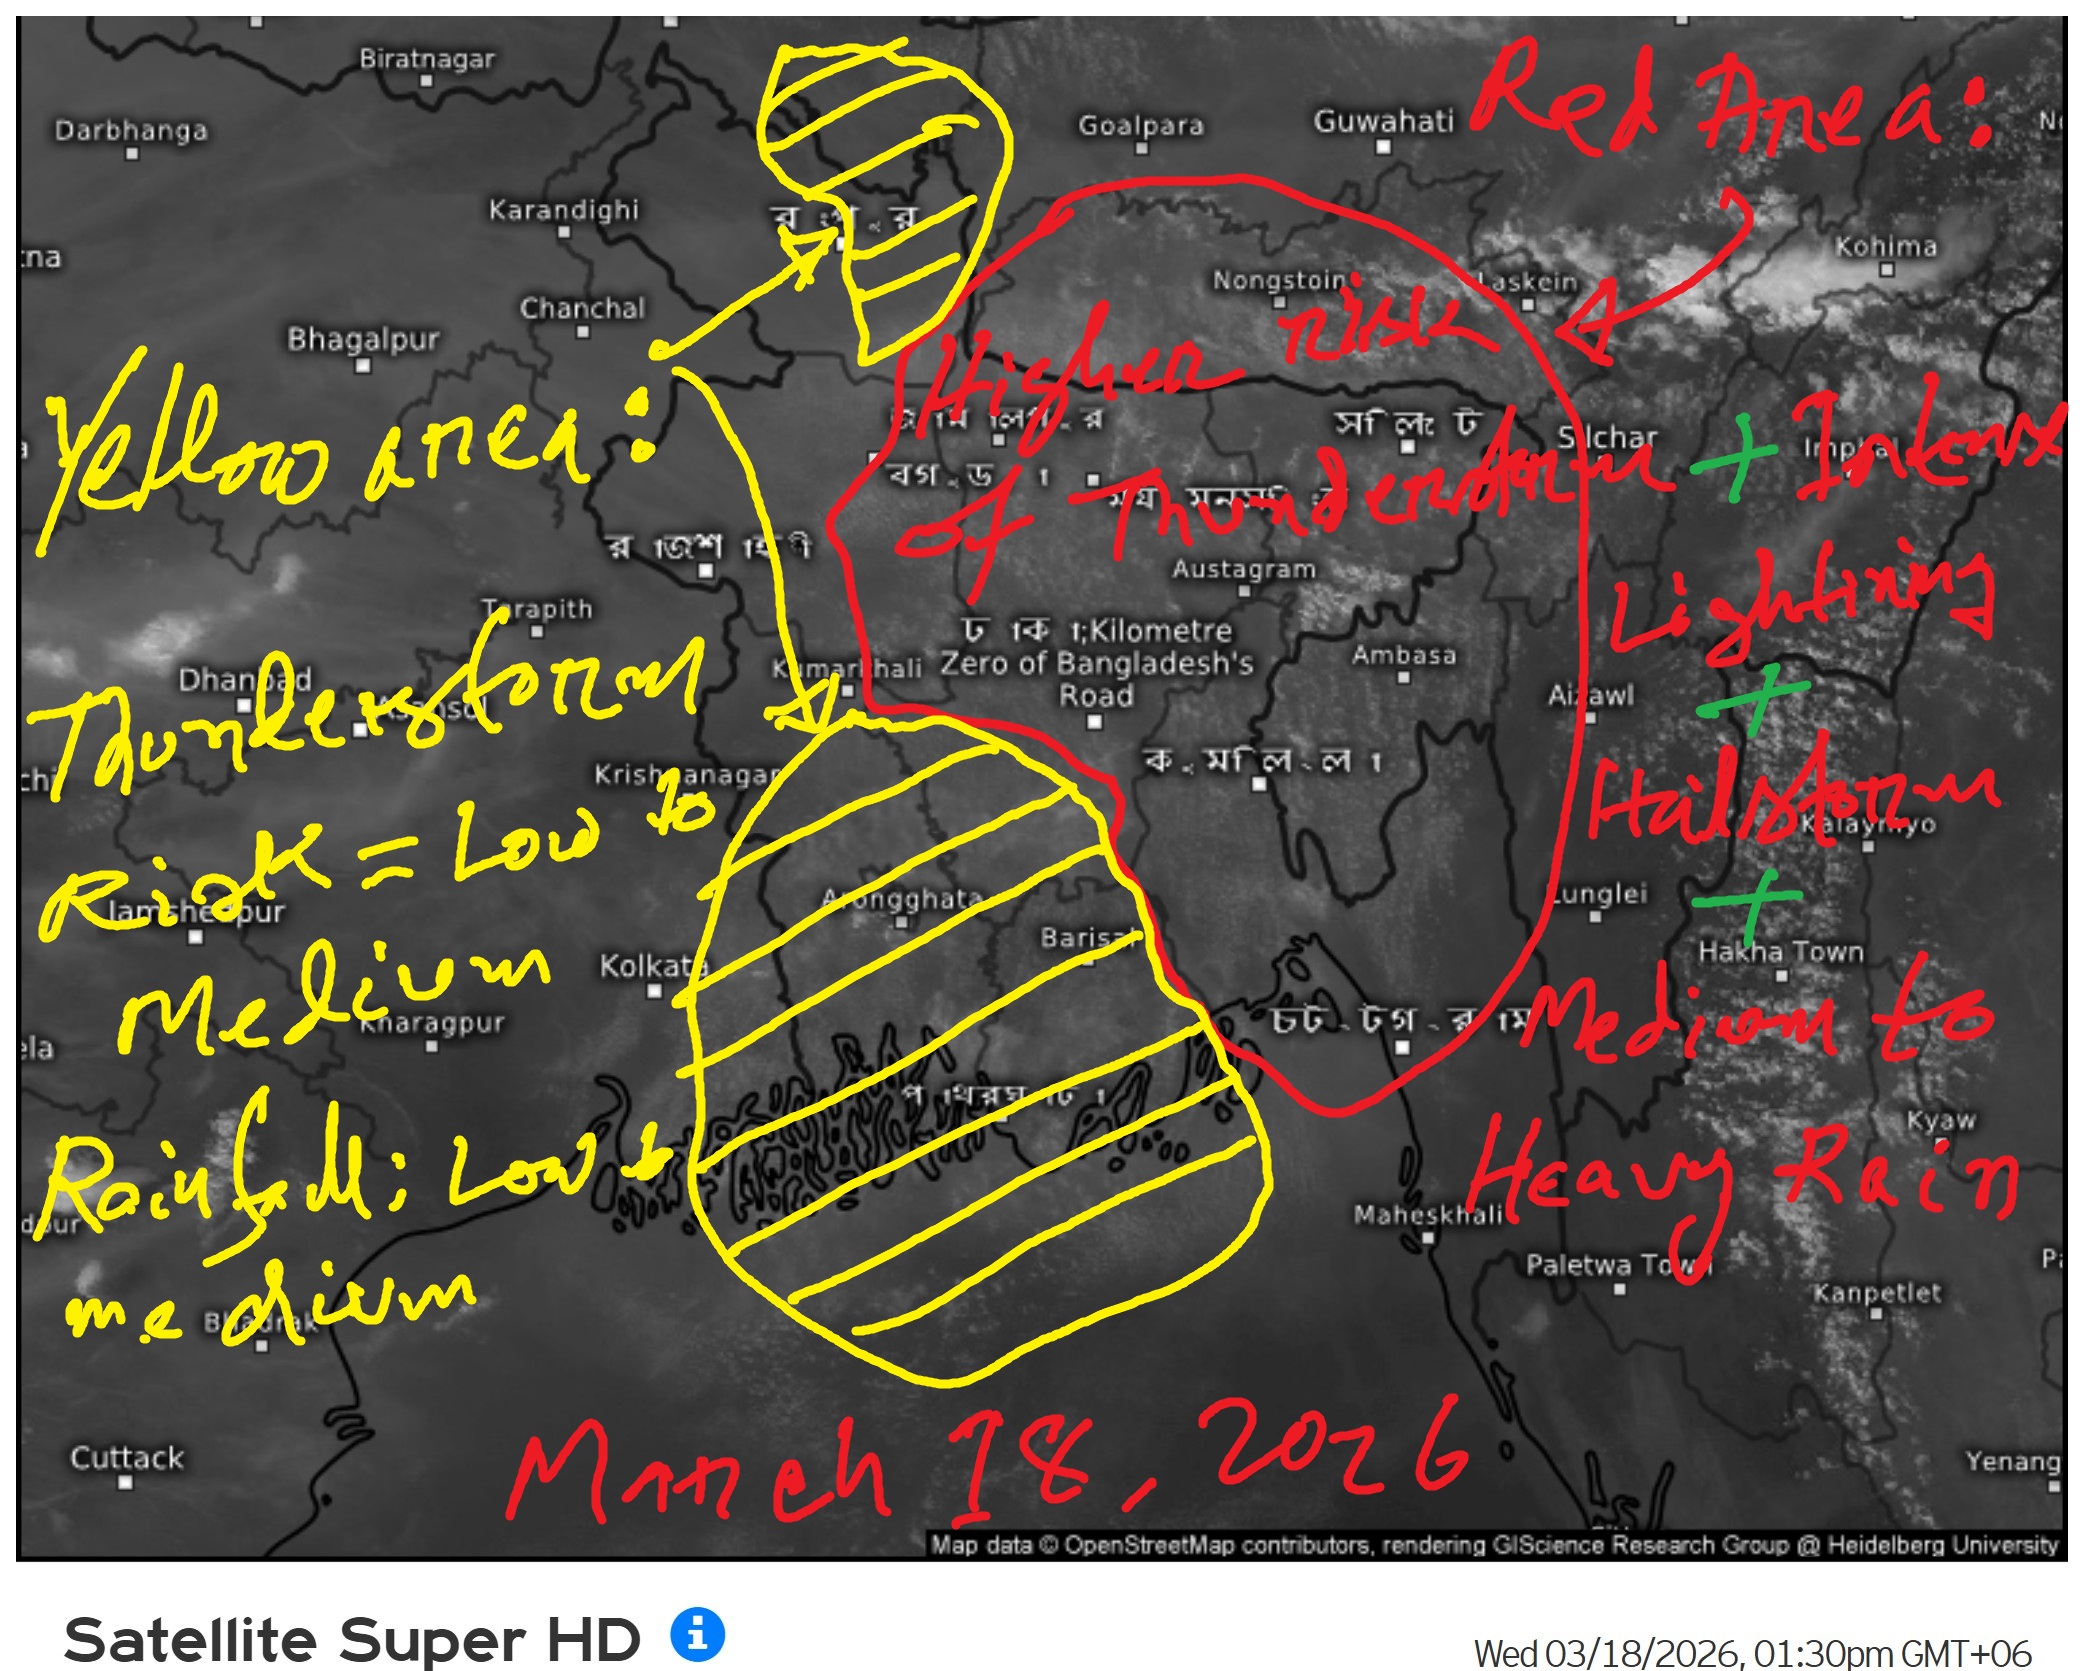 Biratnagar
Darbhanga
Goalpara
Guwahati
Red Area:
Karandighi
Kohima
Nongstoin
Laskein
Chanchal
Bhagalpur
Higher risk
of Thunderstorm + Intense
Lightining
+
Hailstorm
+
Medium to
Heavy Rain
Yellow area:
Thunderstorm
Risk = Low to
Medium
Rainfall: Low to
medium
Silchar
Imphal
Austagram
Tarapith
Kilometre
Zero of Bangladesh's
Road
Kumarkhali
Ambasa
Aizawl
Dhanbad
Asansol
Krishnanagar
Kalaymyo
Jamshedpur
Arongghata
Lunglei
Barisal
Kolkata
Hakha Town
Kharagpur
Kyaw
Maheskhali
Paletwa Town
Kanpetlet
Bhadrak
Cuttack
Yenang
March 18, 2026
Map data © OpenStreetMap contributors, rendering GIScience Research Group @ Heidelberg University
Satellite Super HD
Wed 03/18/2026, 01:30pm GMT+06